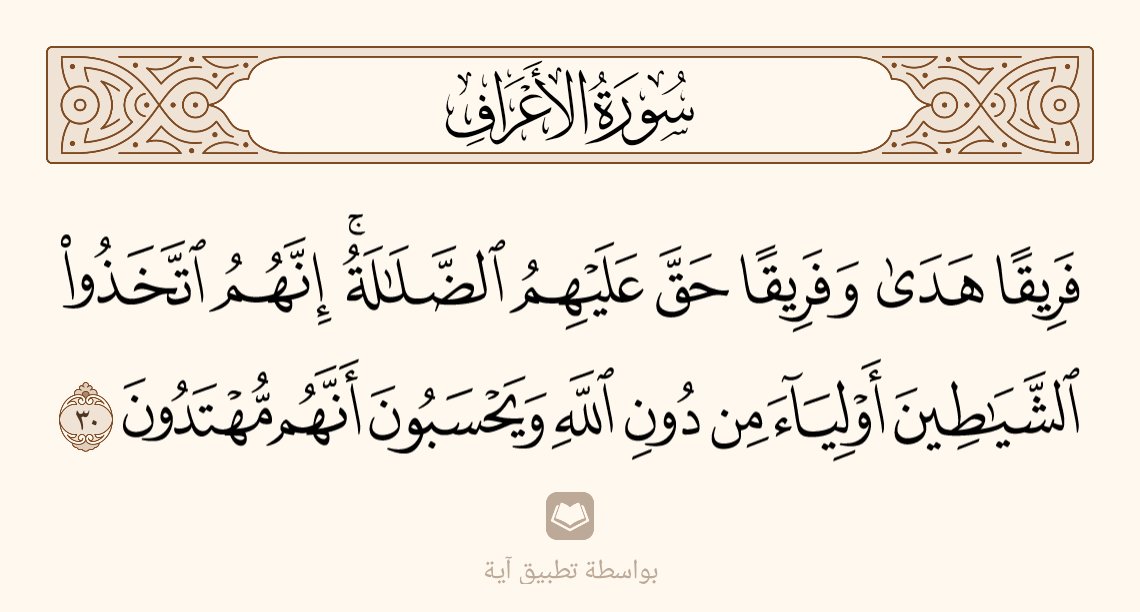 سُورَةُ الأَعْرَافِ
فَرِيقًا هَدَىٰ وَفَرِيقًا حَقَّ عَلَيْهِمُ ٱلضَّلَـٰلَةُ ۚ إِنَّهُمُ ٱتَّخَذُوا۟
ٱلشَّيَـٰطِينَ أَوْلِيَآءَ مِن دُونِ ٱللَّهِ وَيَحْسَبُونَ أَنَّهُم مُّهْتَدُونَ ٣٠
بواسطة تطبيق آية